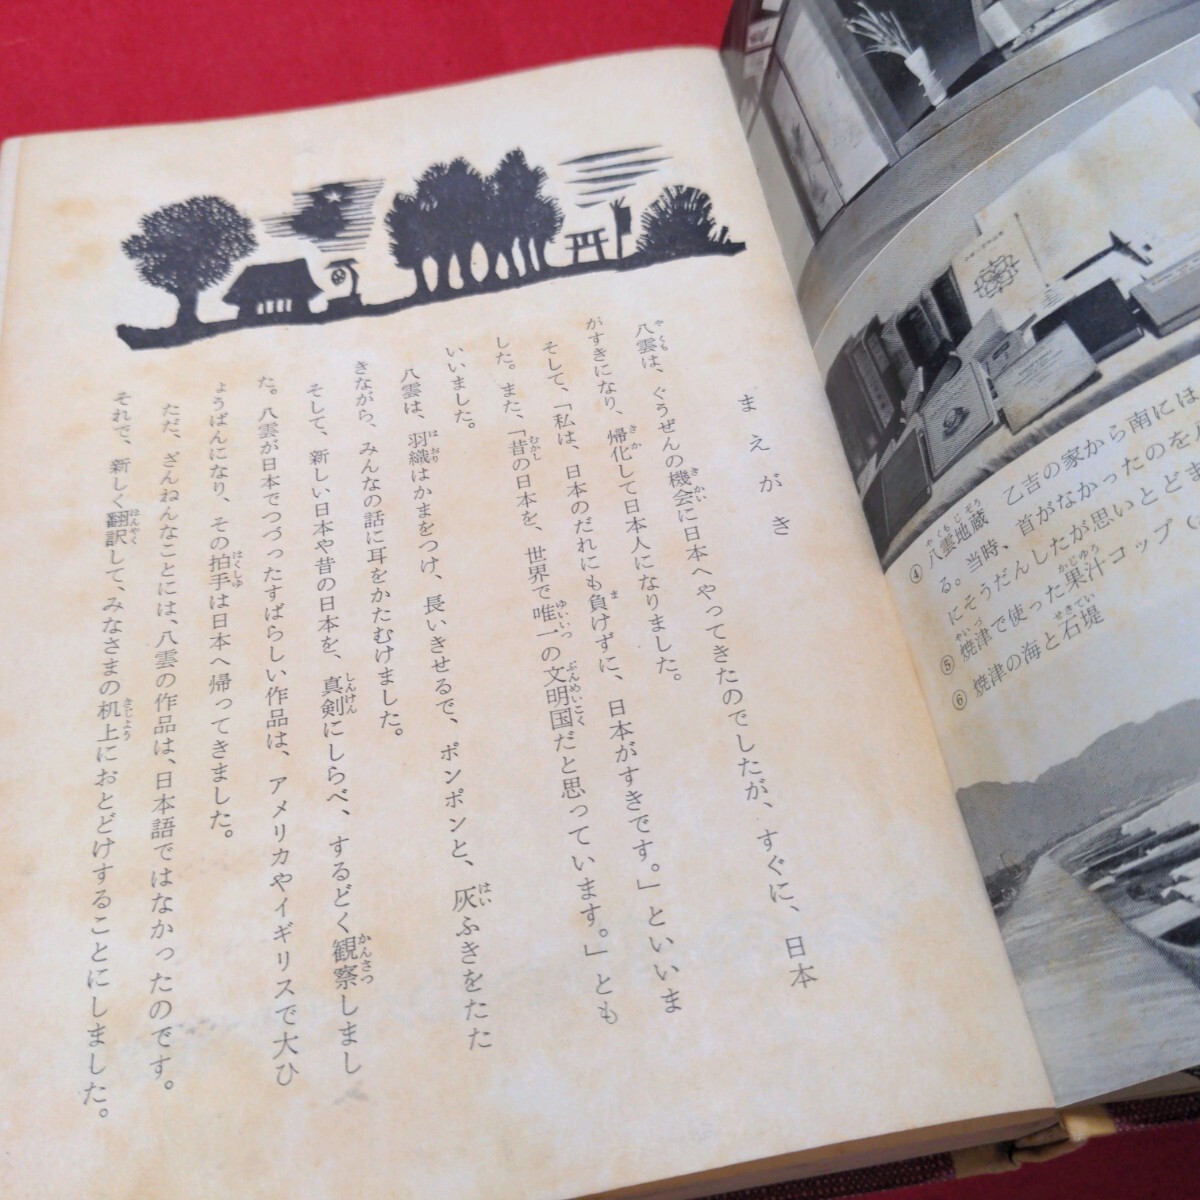 まえがき
八雲は、ぐうぜんの機会に日本へやってきたのでしたが、すぐに、日本
がすきになり、帰化して日本人になりました。
そして、「私は、日本のだれにも負けずに、日本がすきです。」といいま
した。また、「昔の日本を、世界で唯一の文明国だと思っています。」とも
いいました。
八雲は、羽織はかまをつけ、長いきせるで、ポンポンと、灰ふきをたた
きながら、みんなの話に耳をかたむけました。
そして、新しい日本や昔の日本を、真剣にしらべ、するどく観察しまし
た。八雲が日本でつづったすばらしい作品は、アメリカやイギリスで大ひ
ょうばんになり、その拍手は日本へ帰ってきました。
ただ、ざんねんなことには、八雲の作品は、日本語ではなかったのです。
それで、新しく翻訳して、みなさまの机上におとどけすることにしました。
乙吉の家から南には
④八雲地蔵
る。当時、首がなかったのを
にそうだんしたが思いとどま
⑤焼津で使った果汁コップ（
⑥焼津の海と石堤